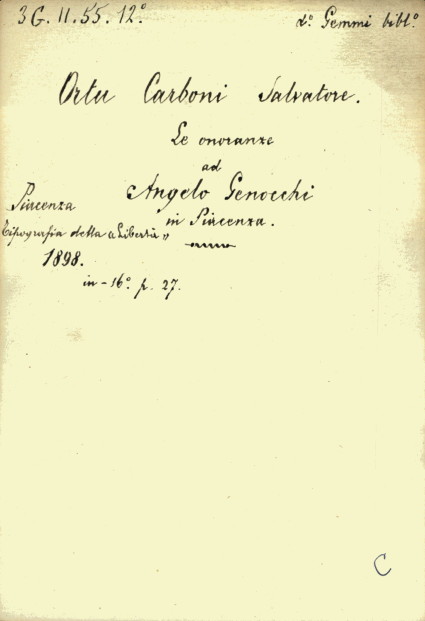 3 G. 11. 55. 12.°
d.° Gemmi bibl.°
Ortu Carboni Salvatore.
Le onoranze
ad
Angelo Genocchi
in Piacenza.
Piacenza
Tipografia della "Libertà„
1898.
in - 16.° p. 27.
C